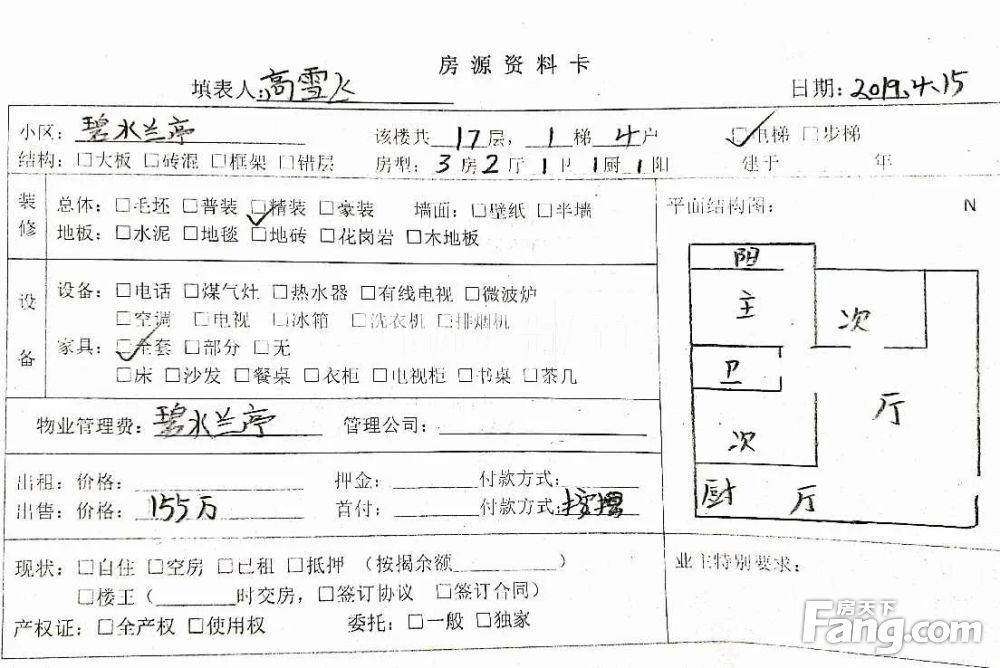 房源资料卡
填表人:高雪飞 日期:2019.4.15
小区:碧水兰亭 该楼共17层,1梯4户 ☑电梯 □步梯
结构:□大板 □砖混 □框架 □错层 房型:3房2厅1卫1厨1阳 建于 年
装修 总体:□毛坯 □普装 ☑精装 □豪装 墙面:□壁纸 □半墙
地板:□水泥 □地毯 □地砖 □花岗岩 □木地板
设备 设备:□电话 □煤气灶 □热水器 □有线电视 □微波炉
□空调 □电视 □冰箱 □洗衣机 □排烟机
家具:☑全套 □部分 □无
□床 □沙发 □餐桌 □衣柜 □电视柜 □书桌 □茶几
平面结构图: N
阳
主
次
卫
厅
次
厨 厅
物业管理费:碧水兰亭 管理公司:
出租:价格: 押金: 付款方式:
出售:价格:155万 首付: 付款方式:
现状:□自住 □空房 □已租 □抵押 (按揭余额 )
□楼王( 时交房,□签订协议 □签订合同)
产权证:□全产权 □使用权 委托:□一般 □独家
业主特别要求:
房天下
Fang.com